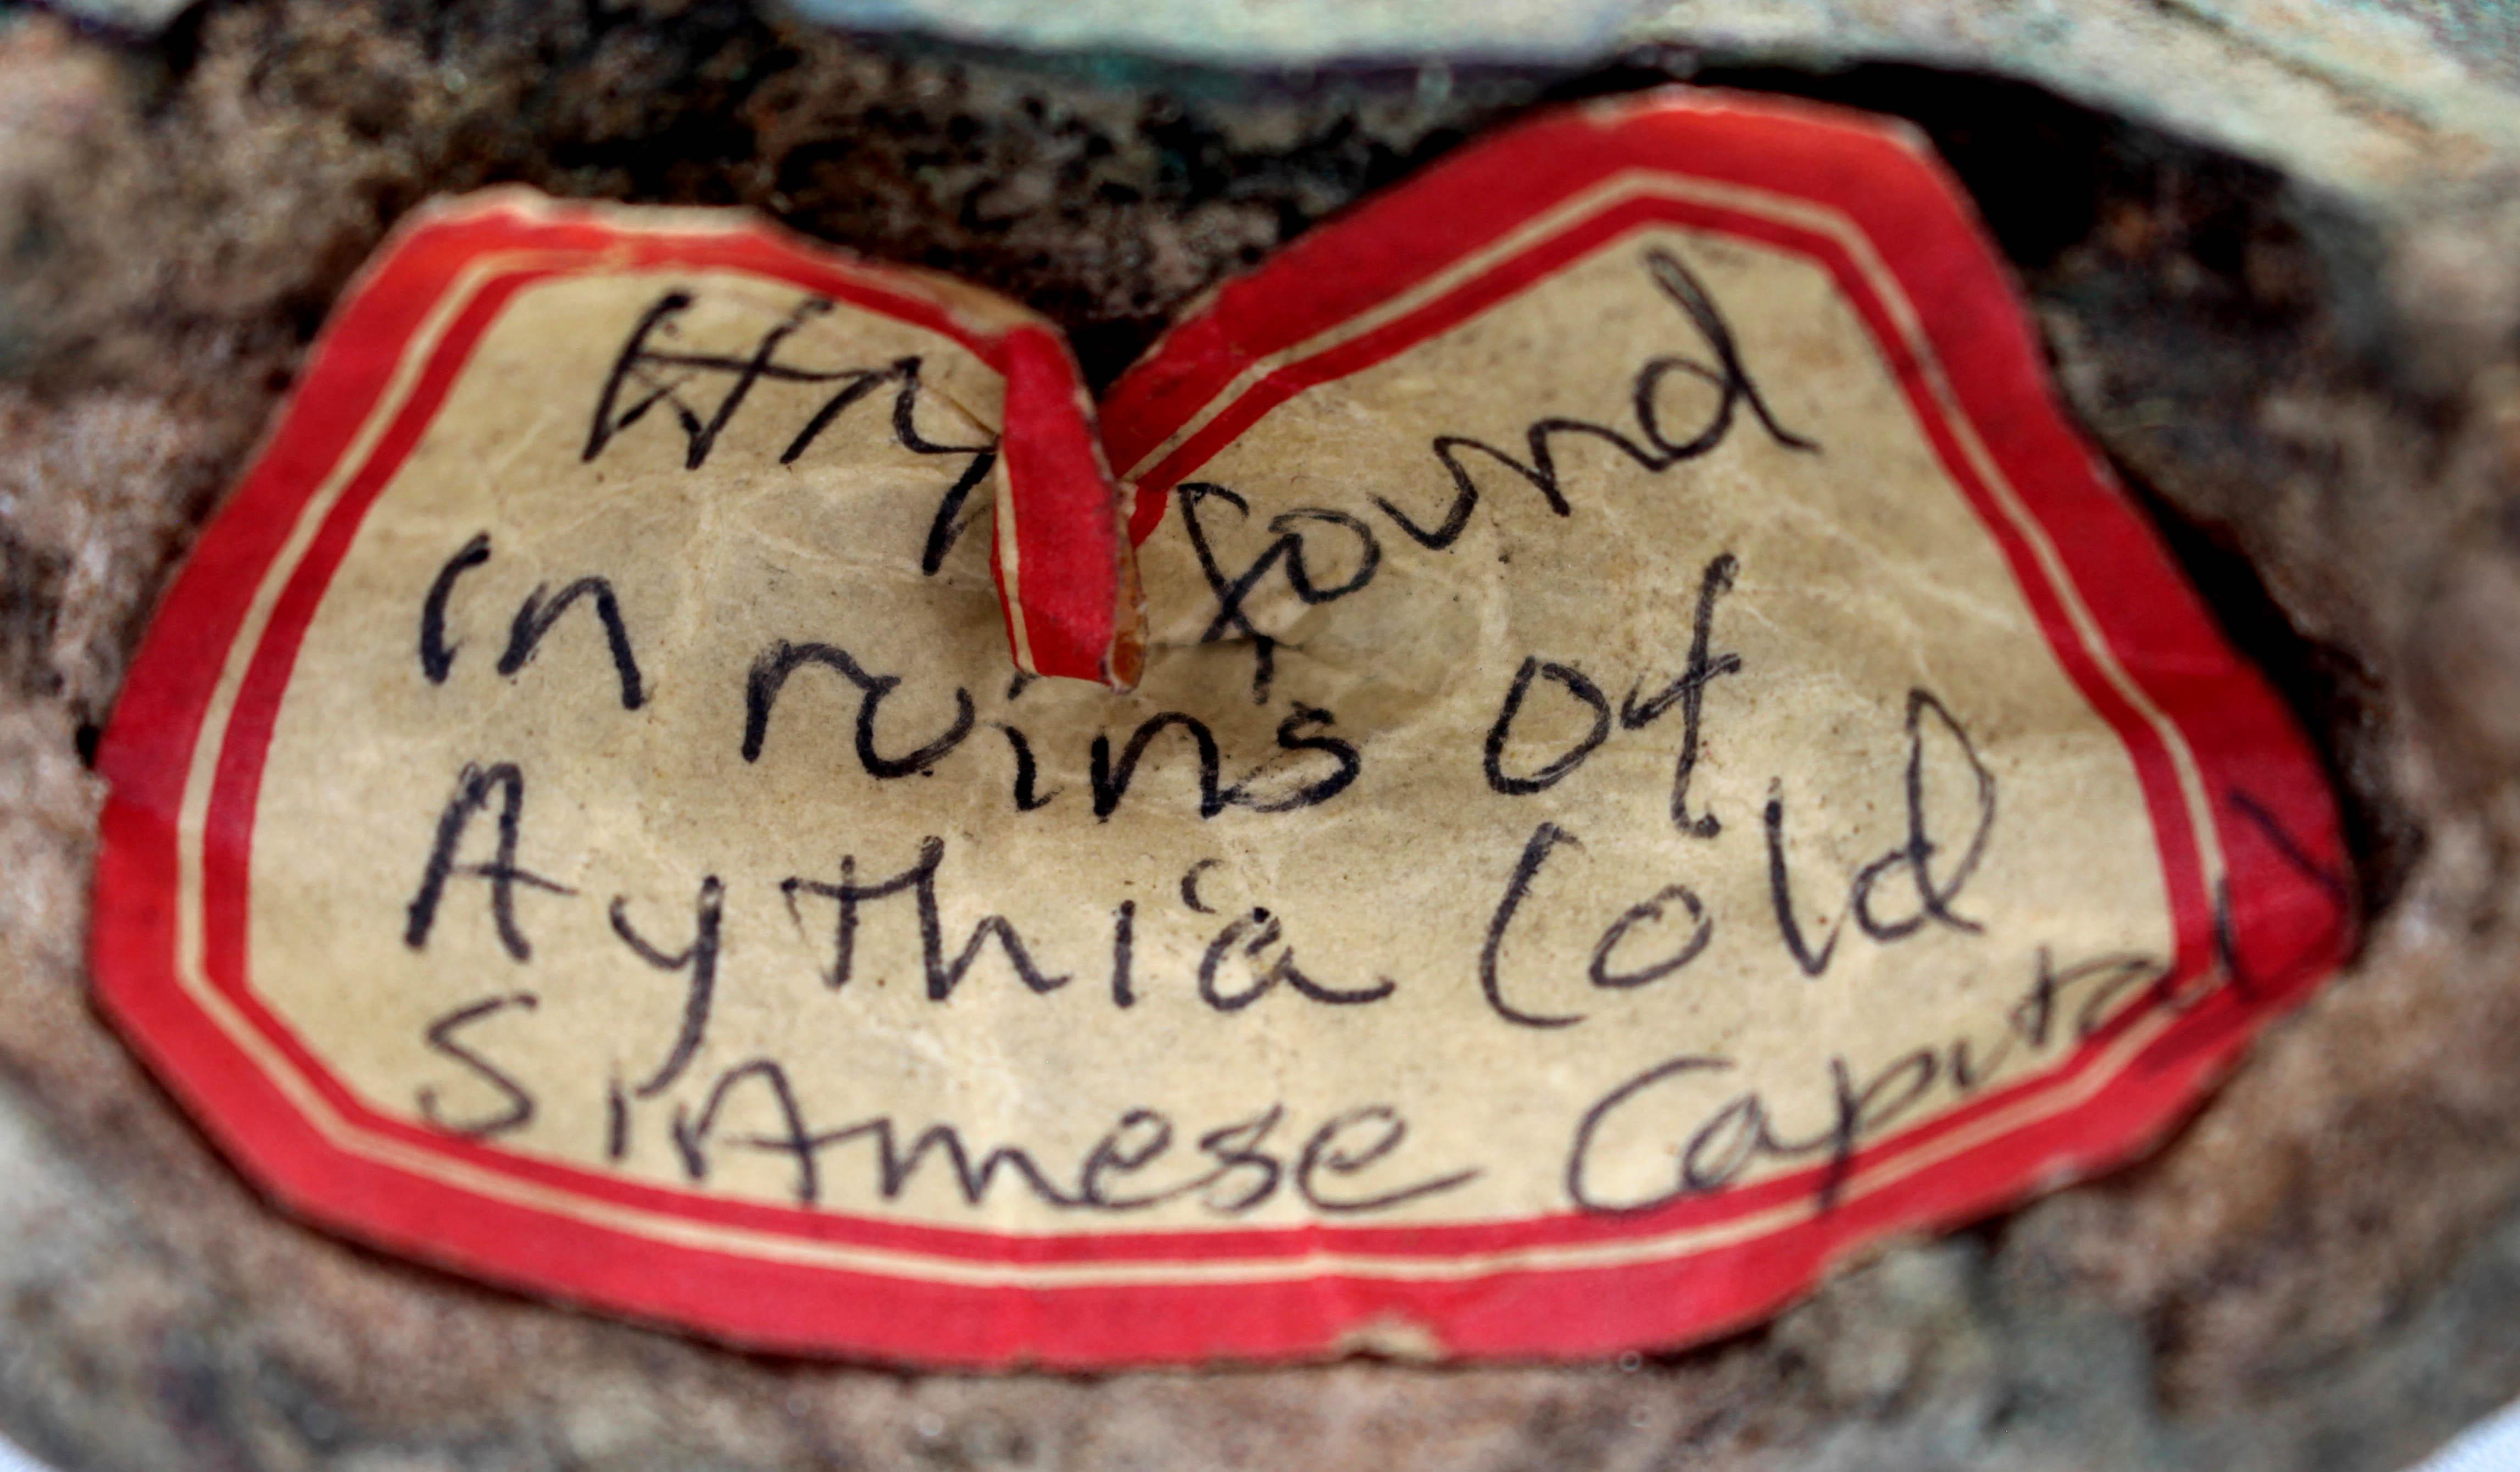 Hry found
in ruins of
Aythia (old
SiAmese Capital)